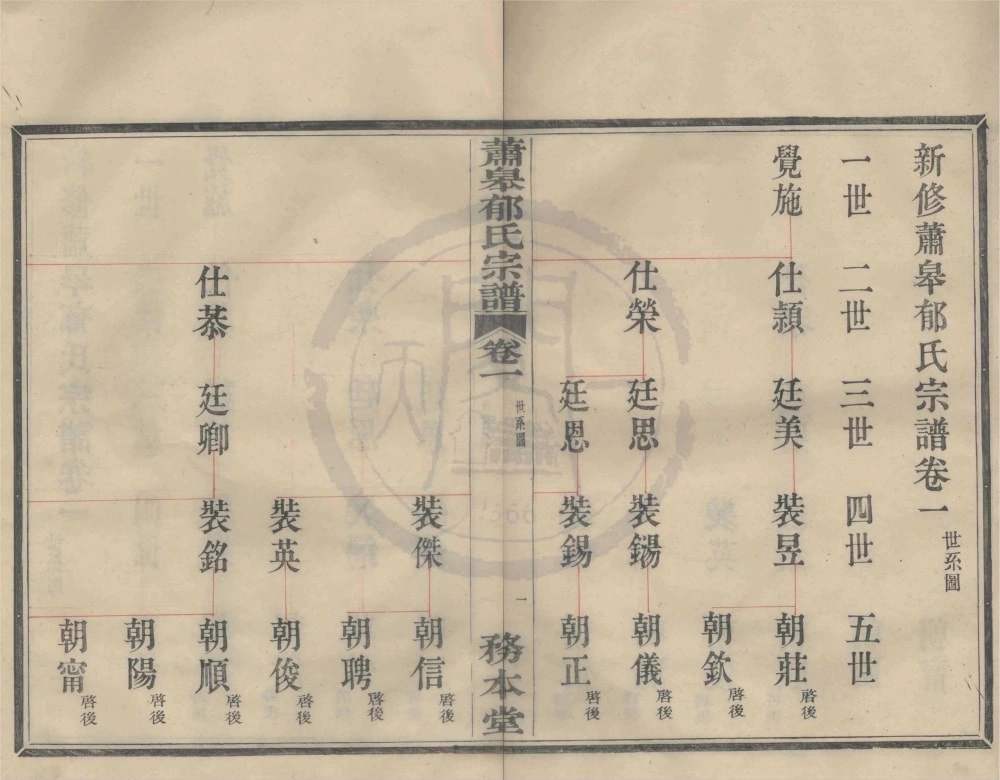 新修蕭皋郁氏宗譜卷一
世系圖
一世 二世 三世 四世 五世
覺施 仕頴 廷美 裝昱 朝莊 啓後
朝欽 啓後
仕榮 廷思 裝鍚 朝儀 啓後
廷恩 裝錫 朝正 啓後
蕭皋郁氏宗譜 卷一 世系圖 一 務本堂
裝傑 朝信 啓後
朝聘 啓後
裝英 朝俊 啓後
仕恭 廷卿 裝銘 朝順 啓後
朝陽 啓後
朝甯 啓後